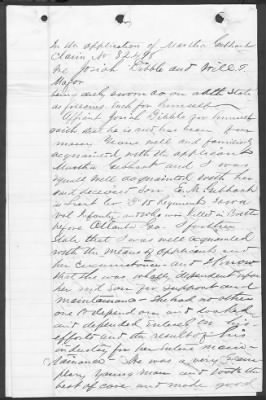 In the application of Martha
Claim No
We Josiah Gibble and Will T.
Major
being duly sworn as on oath State
as follows each for himself
Affiant Josiah Gibble for himself
saith that he is and has been for
many Years well and familiarly
acquainted with the applicant
Martha and I was
equally well acquainted with her
said deceased Son E. M.
a Co E 15 Regiments Iowa
vol Infantry and who was killed in Battle
before Atlanta Ga. I further
State that I was well acquainted
with the means of applicant and
her circumstances and I know
that she was wholly dependent upon
her said son for support and
maintainance She had no other
one to depend on and looked
and depended entirely on his
efforts and the result of his
industry for her entire main-
tainance He was a very
young man and took the
best of care and made good